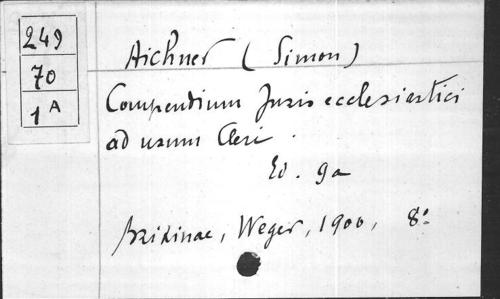 249
70
1 A
Aichner (Simon)
Compendium Juris ecclesiastici
ad usum Cleri.
Ed. 9a
Brixinae, Weger, 1900, 8°